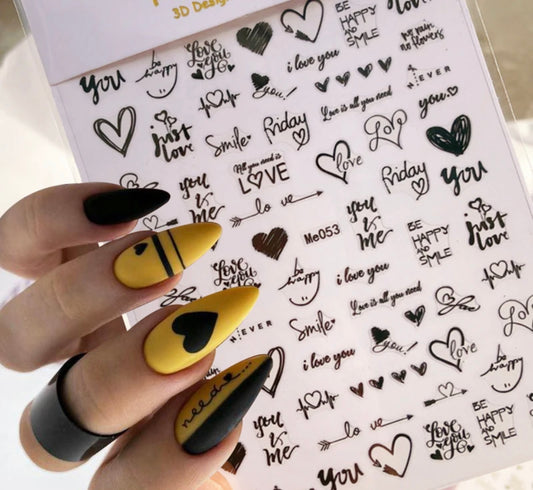 3D Design
Love
You
BE
HAPPY
AND
SMILE
no rain
no flowers
you
be
happy
i love you
EVER
you!
Love is all you need
you
just
love
Smile
Friday
All you need is
LOVE
love
Friday
you
you
is
me
love
Me053
you
is
me
BE
HAPPY
AND
SMILE
just
love
Love
You
be
happy
i love you
Love is all you need
EVER
Smile
you!
love
i love you
be
happy
need
you
is
me
love
BE
HAPPY
AND
SMILE
Love
You
you